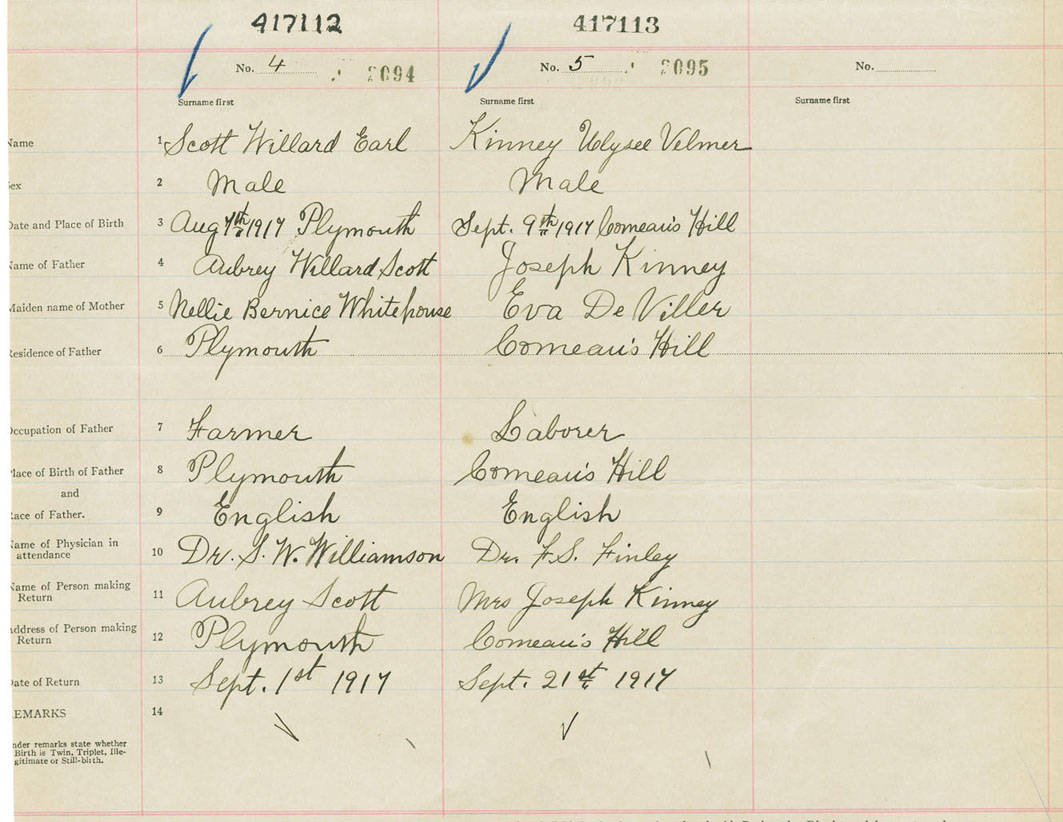 417112 417113
No. 4 2094 No. 5 2095 No.
Surname first Surname first Surname first
Name 1 Scott Willard Earl Kinney Ulysee Velmer
ex 2 Male Male
Date and Place of Birth 3 Aug 4th 1917 Plymouth Sept. 9th 1917 Comeau's Hill
Name of Father 4 Aubrey Willard Scott Joseph Kinney
Maiden name of Mother 5 Nellie Bernice Whitehouse Eva De Viller
Residence of Father 6 Plymouth Comeau's Hill
Occupation of Father 7 Farmer Laborer
Place of Birth of Father 8 Plymouth Comeau's Hill
and
ace of Father. 9 English English
Name of Physician in
attendance 10 Dr. S. W. Williamson Dr. F.S. Finley
Name of Person making
Return 11 Aubrey Scott Mrs Joseph Kinney
Address of Person making
Return 12 Plymouth Comeau's Hill
Date of Return 13 Sept. 1st 1917 Sept. 21st 1917
EMARKS 14
nder remarks state whether
Birth is Twin, Triplet, Ille-
gitimate or Still-birth.